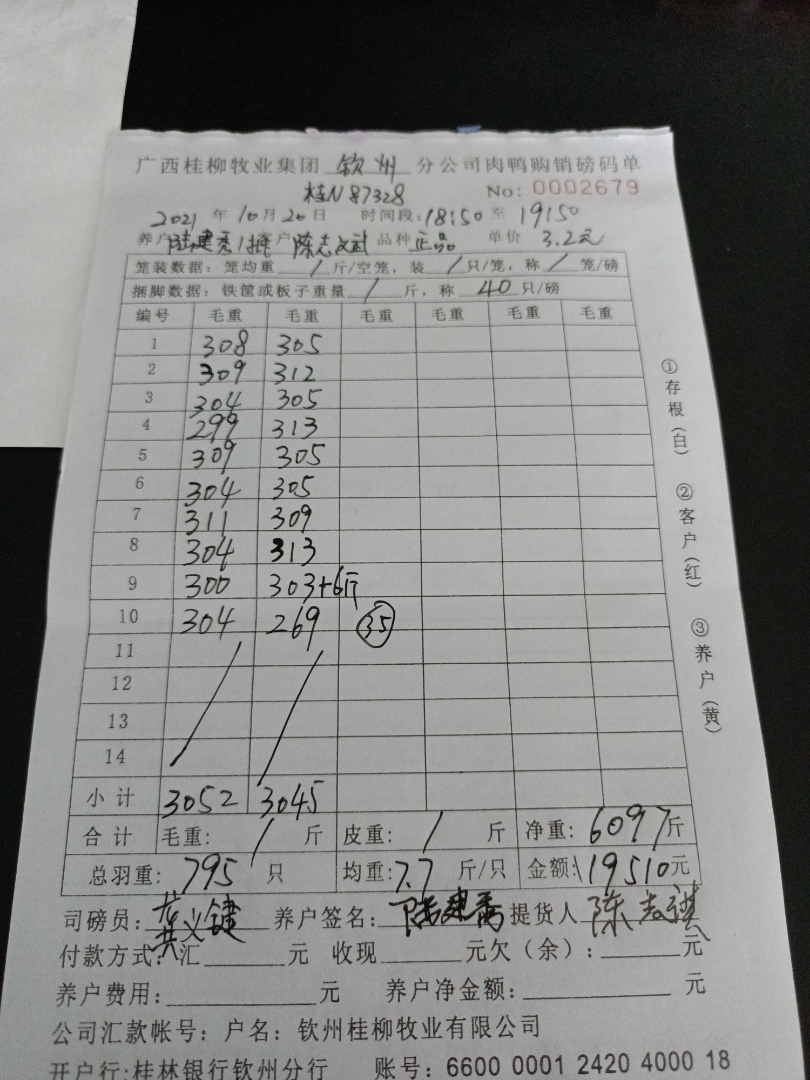 广西桂柳牧业集团 钦州 分公司肉鸭购销磅码单
桂N87328 No: 0002679
2021 年 10 月 20 日 时间段: 18:50 至 19:50
养户 陆建秀1批 客户 陈志武 品种 正品 单价 3.2元
笼装数据: 笼均重 / 斤/空笼, 装 / 只/笼, 称 / 笼/磅
捆脚数据: 铁筐或板子重量 / 斤, 称 40 只/磅
编号 毛重 毛重 毛重 毛重 毛重 毛重
1 308 305
2 309 312
3 304 305
4 299 313
5 309 305
6 304 305
7 311 309
8 304 313
9 300 303+6斤
10 304 269 35
11
12
13
14
小计 3052 3045
合计 毛重: / 斤 皮重: / 斤 净重: 6097斤
总羽重: 795 只 均重: 7.7 斤/只 金额: 19510元
司磅员: 养户签名: 陆建秀 提货人 陈志
付款方式: 汇 元 收现 元欠（余）: 元
养户费用: 元 养户净金额: 元
公司汇款帐号: 户名: 钦州桂柳牧业有限公司
开户行: 桂林银行钦州分行 账号: 6600 0001 2420 4000 18
①存根（白）
②客户（红）
③养户（黄）